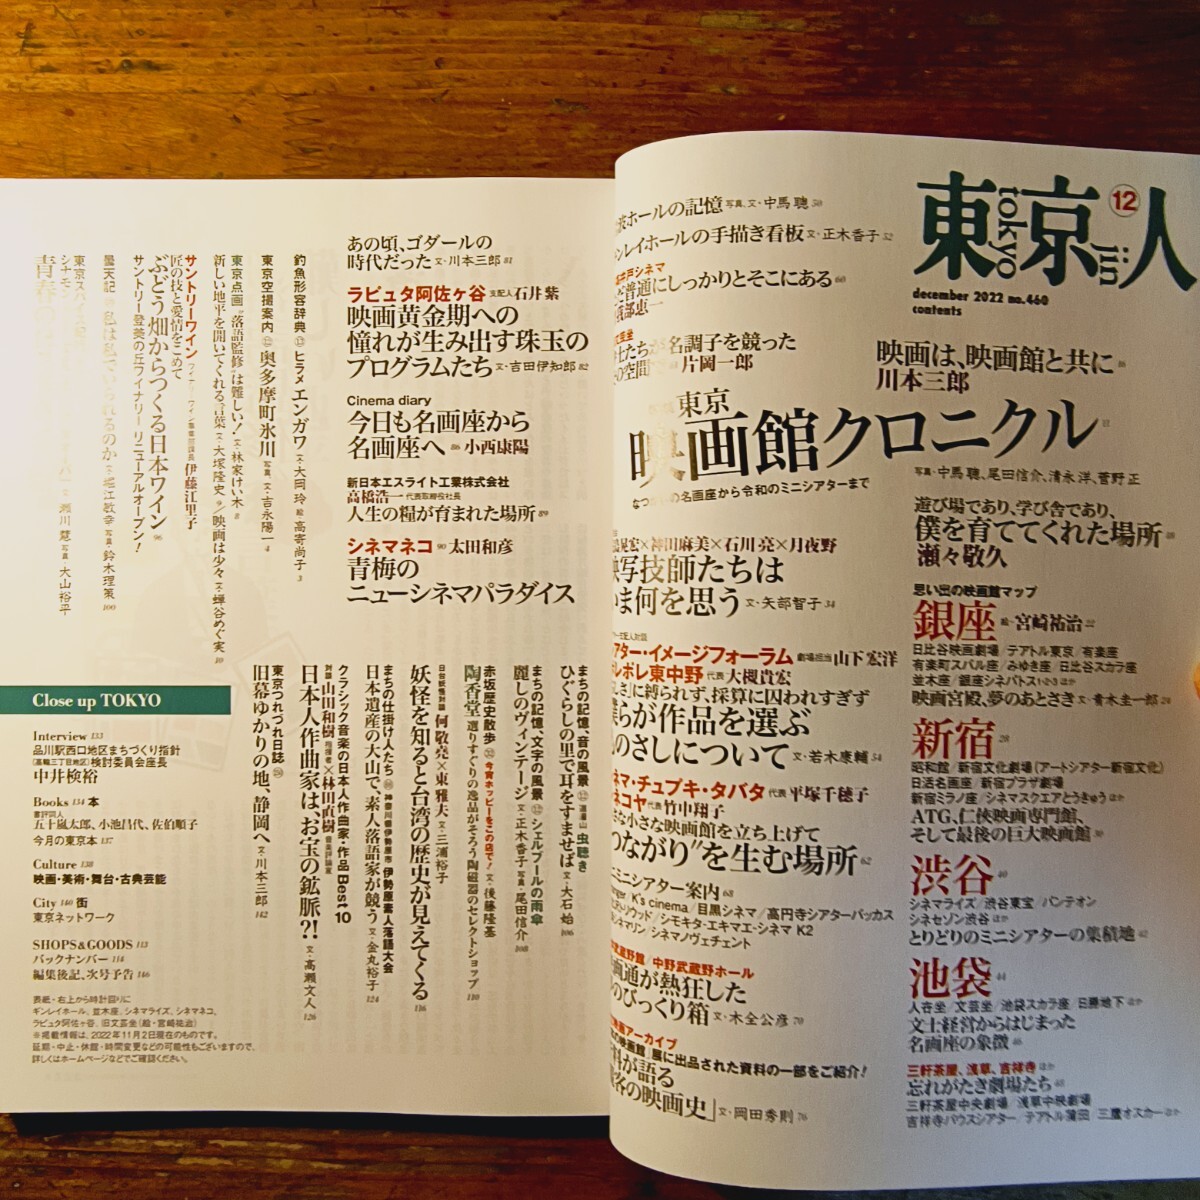 東京人
tokyo jin
12
december 2022 no.460
contents
映画は、映画館と共に
川本三郎
東京
映画館クロニクル
写真・中馬聰、尾田信介、清永洋、菅野正
遊び場であり、学び舎であり、
僕を育ててくれた場所
瀬々敬久
思い出の映画館マップ
銀座 絵・宮崎祐治 22
日比谷映画劇場/テアトル東京/有楽座
有楽町スバル座/みゆき座/日比谷スカラ座
並木座/銀座シネパトス1・2・3 ほか
映画宮殿、夢のあとさき 文・青木圭一郎 24
新宿 28
昭和館/新宿文化劇場(アートシアター新宿文化)
日活名画座/新宿プラザ劇場
新宿ミラノ座/シネマスクエアとうきゅう ほか
ATG、仁侠映画専門館、
そして最後の巨大映画館 30
渋谷 40
シネマライズ/渋谷東宝/パンテオン
シネセゾン渋谷 ほか
とりどりのミニシアターの集積地 42
池袋 44
人世坐/文芸坐/池袋スカラ座/日勝地下 ほか
文士経営からはじまった
名画座の象徴 46
三軒茶屋、浅草、吉祥寺 ほか
忘れがたき劇場たち
三軒茶屋中央劇場/浅草中映劇場
吉祥寺バウスシアター/テアトル蒲田/三鷹オスカー ほか
ホールの記憶 写真、文・中馬聰 50
ンレイホールの手描き看板 文・正木香子 52
戸シネマ
普通にしっかりとそこにある 60
部恵一
名調子を競った
片岡一郎
の名画座から令和のミニシアターまで
晃宏×神田麻美×石川亮×月夜野
写技師たちは
ま何を思う 文・矢部智子 34
アター・イメージフォーラム 劇場担当 山下宏洋
レポレ東中野 代表 大槻貴宏
に縛られず、採算に囚われすぎず
らが作品を選ぶ
のさしについて 文・若木康輔 54
ネマ・チュプキ・タバタ 代表 平塚千穂子
ネコヤ 代表 竹中翔子
小さな映画館を立ち上げて
つながり”を生む場所 62
ミニシアター案内 68
K's cinema/目黒シネマ/高円寺シアターバッカス
リウッド/シモキタ・エキマエ・シネマ K2
シネマリン/シネマノヴェチェント
武蔵野館/中野武蔵野ホール
画通が熱狂した
のびっくり箱 文・木全公彦 70
映画アーカイブ
の映画館」展に出品された資料の一部をご紹介!
料が語る
客の映画史」 文・岡田秀則 76
あの頃、ゴダールの
時代だった 文・川本三郎 81
ラピュタ阿佐ヶ谷 支配人 石井紫
映画黄金期への
憧れが生み出す珠玉の
プログラムたち 文・吉田伊知郎 82
Cinema diary
今日も名画座から
名画座へ 86 小西康陽
新日本エスライト工業株式会社
高橋浩一 代表取締役社長
人生の糧が育まれた場所 89
シネマネコ 90 太田和彦
青梅の
ニューシネマパラダイス
釣魚形容辞典 ⑬ ヒラメ エンガワ 文・大岡玲 絵・高寄尚子 3
東京空撮案内 ⑫ 奥多摩町氷川 写真、文・吉永陽一 4
東京点画 “落語監修”は難しい! 文・林家けい木 8
新しい地平を開いてくれる言葉 文・大塚隆史 9 映画は少々 文・蟬谷めぐ実 10
サントリーワイン ワイナリー・ワイン事業部課長 伊藤江里子
匠の技と愛情をこめて
ぶどう畑からつくる日本ワイン 96
サントリー登美の丘ワイナリー リニューアルオープン!
曇天記
文・堀江敏幸 写真・鈴木理策 100
東京スパイス
シナモン
青春
瀬川慧 写真・大山裕平
まちの記憶、音の風景 ⑫ 道灌山 虫聴き
ひぐらしの里で耳をすませば 文・大石始 106
まちの記憶、文字の風景 ⑫ シェルブールの雨傘
麗しのヴィンテージ 文・正木香子 写真・尾田信介 108
赤坂歴史散歩 ㉜ 今宵ホッピーをこの店で!
陶香堂 選りすぐりの逸品がそろう陶磁器のセレクトショップ 文・後藤隆基 110
日台妖怪対談 何敬堯×東雅夫 文・三浦裕子
妖怪を知ると台湾の歴史が見えてくる 116
まちの仕掛け人たち 神奈川県伊勢原市 伊勢原素人落語大会
日本遺産の大山で、素人落語家が競う 文・金丸裕子 124
クラシック音楽の日本人作曲家・作品 Best 10
対談 山田和樹 指揮者 × 林田直樹 音楽評論家
日本人作曲家は、お宝の鉱脈?! 文・高瀬文人 126
東京つれづれ日誌
旧幕ゆかりの地、静岡へ 文・川本三郎 142
Close up TOKYO
Interview 133
品川駅西口地区まちづくり指針
(高輪三丁目地区)検討委員会座長
中井検裕
Books 134 本
書評同人
五十嵐太郎、小池昌代、佐伯順子
今月の東京本 137
Culture 138
映画・美術・舞台・古典芸能
City 140 街
東京ネットワーク
SHOPS&GOODS 113
バックナンバー 114
編集後記、次号予告 146
表紙・右上から時計回りに
ギンレイホール、並木座、シネマライズ、シネマネコ、
ラピュタ阿佐ヶ谷、旧文芸坐(絵・宮崎祐治)
※掲載情報は、2022年11月2日現在のものです。
延期・中止・休館・時間変更などの可能性もございますので、
詳しくはホームページなどでご確認ください。